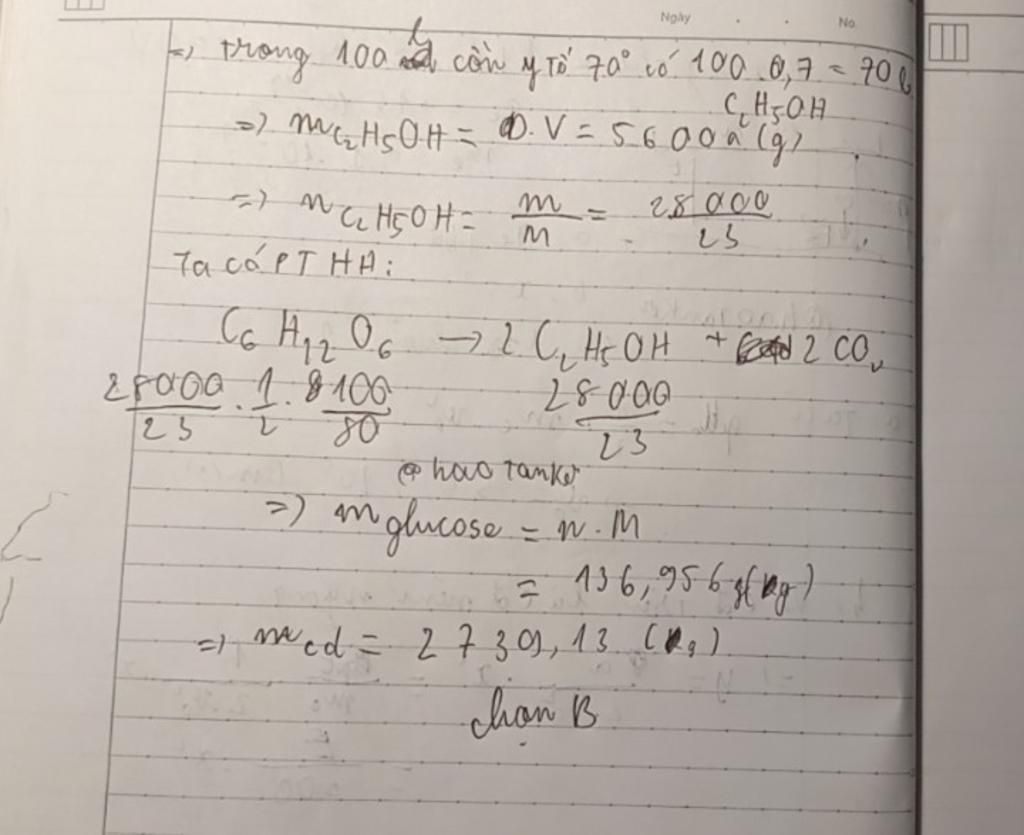 Ngày . . No.
=> trong 100 l cồn y tế 70° có 100.0,7 = 70 l
C2H5OH
=> mC2H5OH = D.V = 56000 (g)
=> nC2H5OH = m/M = 28000/23
Ta có PTHH:
C6H12O6 → 2 C2H5OH + 2 CO2
28000/23 . 1/2 . 100/80 28000/23
@haotanker
=> m glucose = n.M
= 136,956 (kg)
=> mcd = 2739,13 (kg)
chọn B